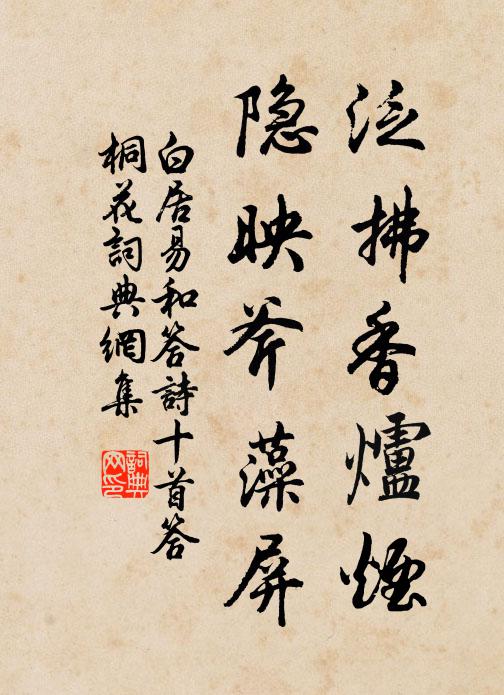 泛拂香爐煙
隐映斧藻屏
白居易和答詩十首答
桐花詞典網集
詞典
网印